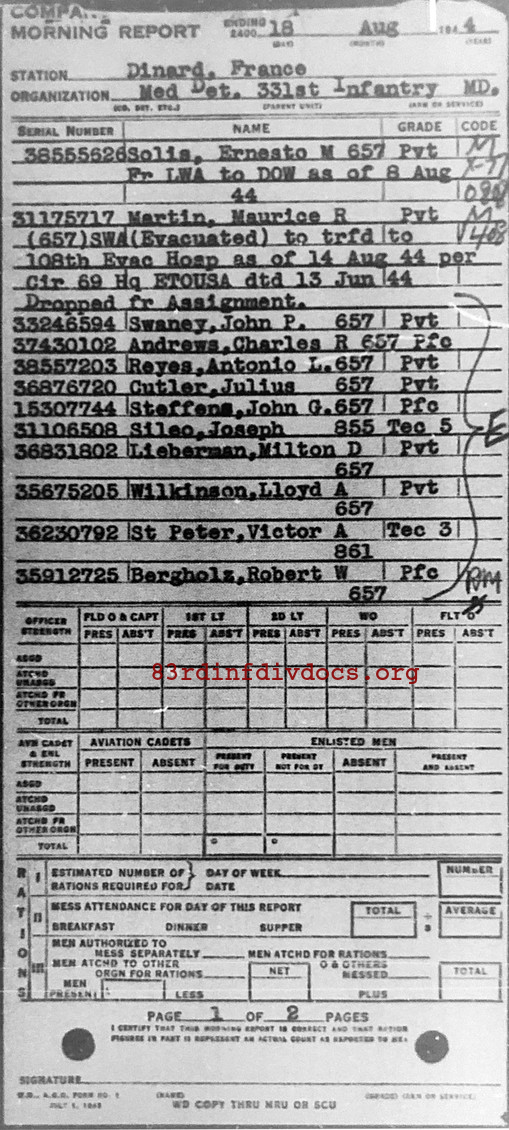 COMPA
MORNING REPORT ENDING 2400 18 Aug 1944
(DAY) (MONTH) (YEAR)
STATION Dinard, France
ORGANIZATION Med Det. 331st Infantry MD.
(CO. DET. ETC.) (PARENT UNIT) (ARM OR SERVICE)
SERIAL NUMBER NAME GRADE CODE
38555626 Solis, Ernesto M 657 Pvt M
Fr LWA to DOW as of 8 Aug
44
31175717 Martin, Maurice R Pvt M
(657)SWA(Evacuated) to trfd to
108th Evac Hosp as of 14 Aug 44 per
Cir 69 Hq ETOUSA dtd 13 Jun 44
Dropped fr Assignment.
33246594 Swaney,John P. 657 Pvt
37430102 Andrews,Charles R 657 Pfc
38557203 Reyes,Antonio L.657 Pvt
36876720 Cutler,Julius 657 Pvt
15307744 Steffens,John G.657 Pfc
31106508 Sileo,Joseph 855 Tec 5 E
36831802 Lieberman,Milton D Pvt
657
35675205 Wilkinson,Lloyd A Pvt
657
36230792 St Peter,Victor A Tec 3
861
35912725 Bergholz,Robert W Pfc
657
OFFICER STRENGTH FLD O & CAPT 1ST LT 2D LT WO FLT O
PRES ABS'T PRES ABS'T PRES ABS'T PRES ABS'T PRES ABS'T
ASGD
ATCHD UNASGD
ATCHD FR OTHER ORGN
TOTAL
83rdinfdivdocs.org
AVN CADET & ENL STRENGTH AVIATION CADETS ENLISTED MEN
PRESENT ABSENT PRESENT FOR DUTY PRESENT NOT FOR DY ABSENT PRESENT AND ABSENT
ASGD
ATCHD UNASGD
ATCHD FR OTHER ORGN
TOTAL
RATIONS
I ESTIMATED NUMBER OF RATIONS REQUIRED FOR } DAY OF WEEK DATE NUMBER
II MESS ATTENDANCE FOR DAY OF THIS REPORT TOTAL ÷ 3 AVERAGE
BREAKFAST DINNER SUPPER
III MEN AUTHORIZED TO MESS SEPARATELY MEN ATCHD FOR RATIONS
MEN ATCHD TO OTHER ORGN FOR RATIONS NET O & OTHERS MESSED TOTAL
MEN PRESENT LESS PLUS
PAGE 1 OF 2 PAGES
I CERTIFY THAT THIS MORNING REPORT IS CORRECT AND THAT RATION
FIGURES IN PART III REPRESENT AN ACTUAL COUNT AS REPORTED TO ME
SIGNATURE
W.D., A.G.O. FORM NO. 1 (NAME) (GRADE) (ARM OR SERVICE)
JULY 1, 1943 WD COPY THRU MRU OR SCU